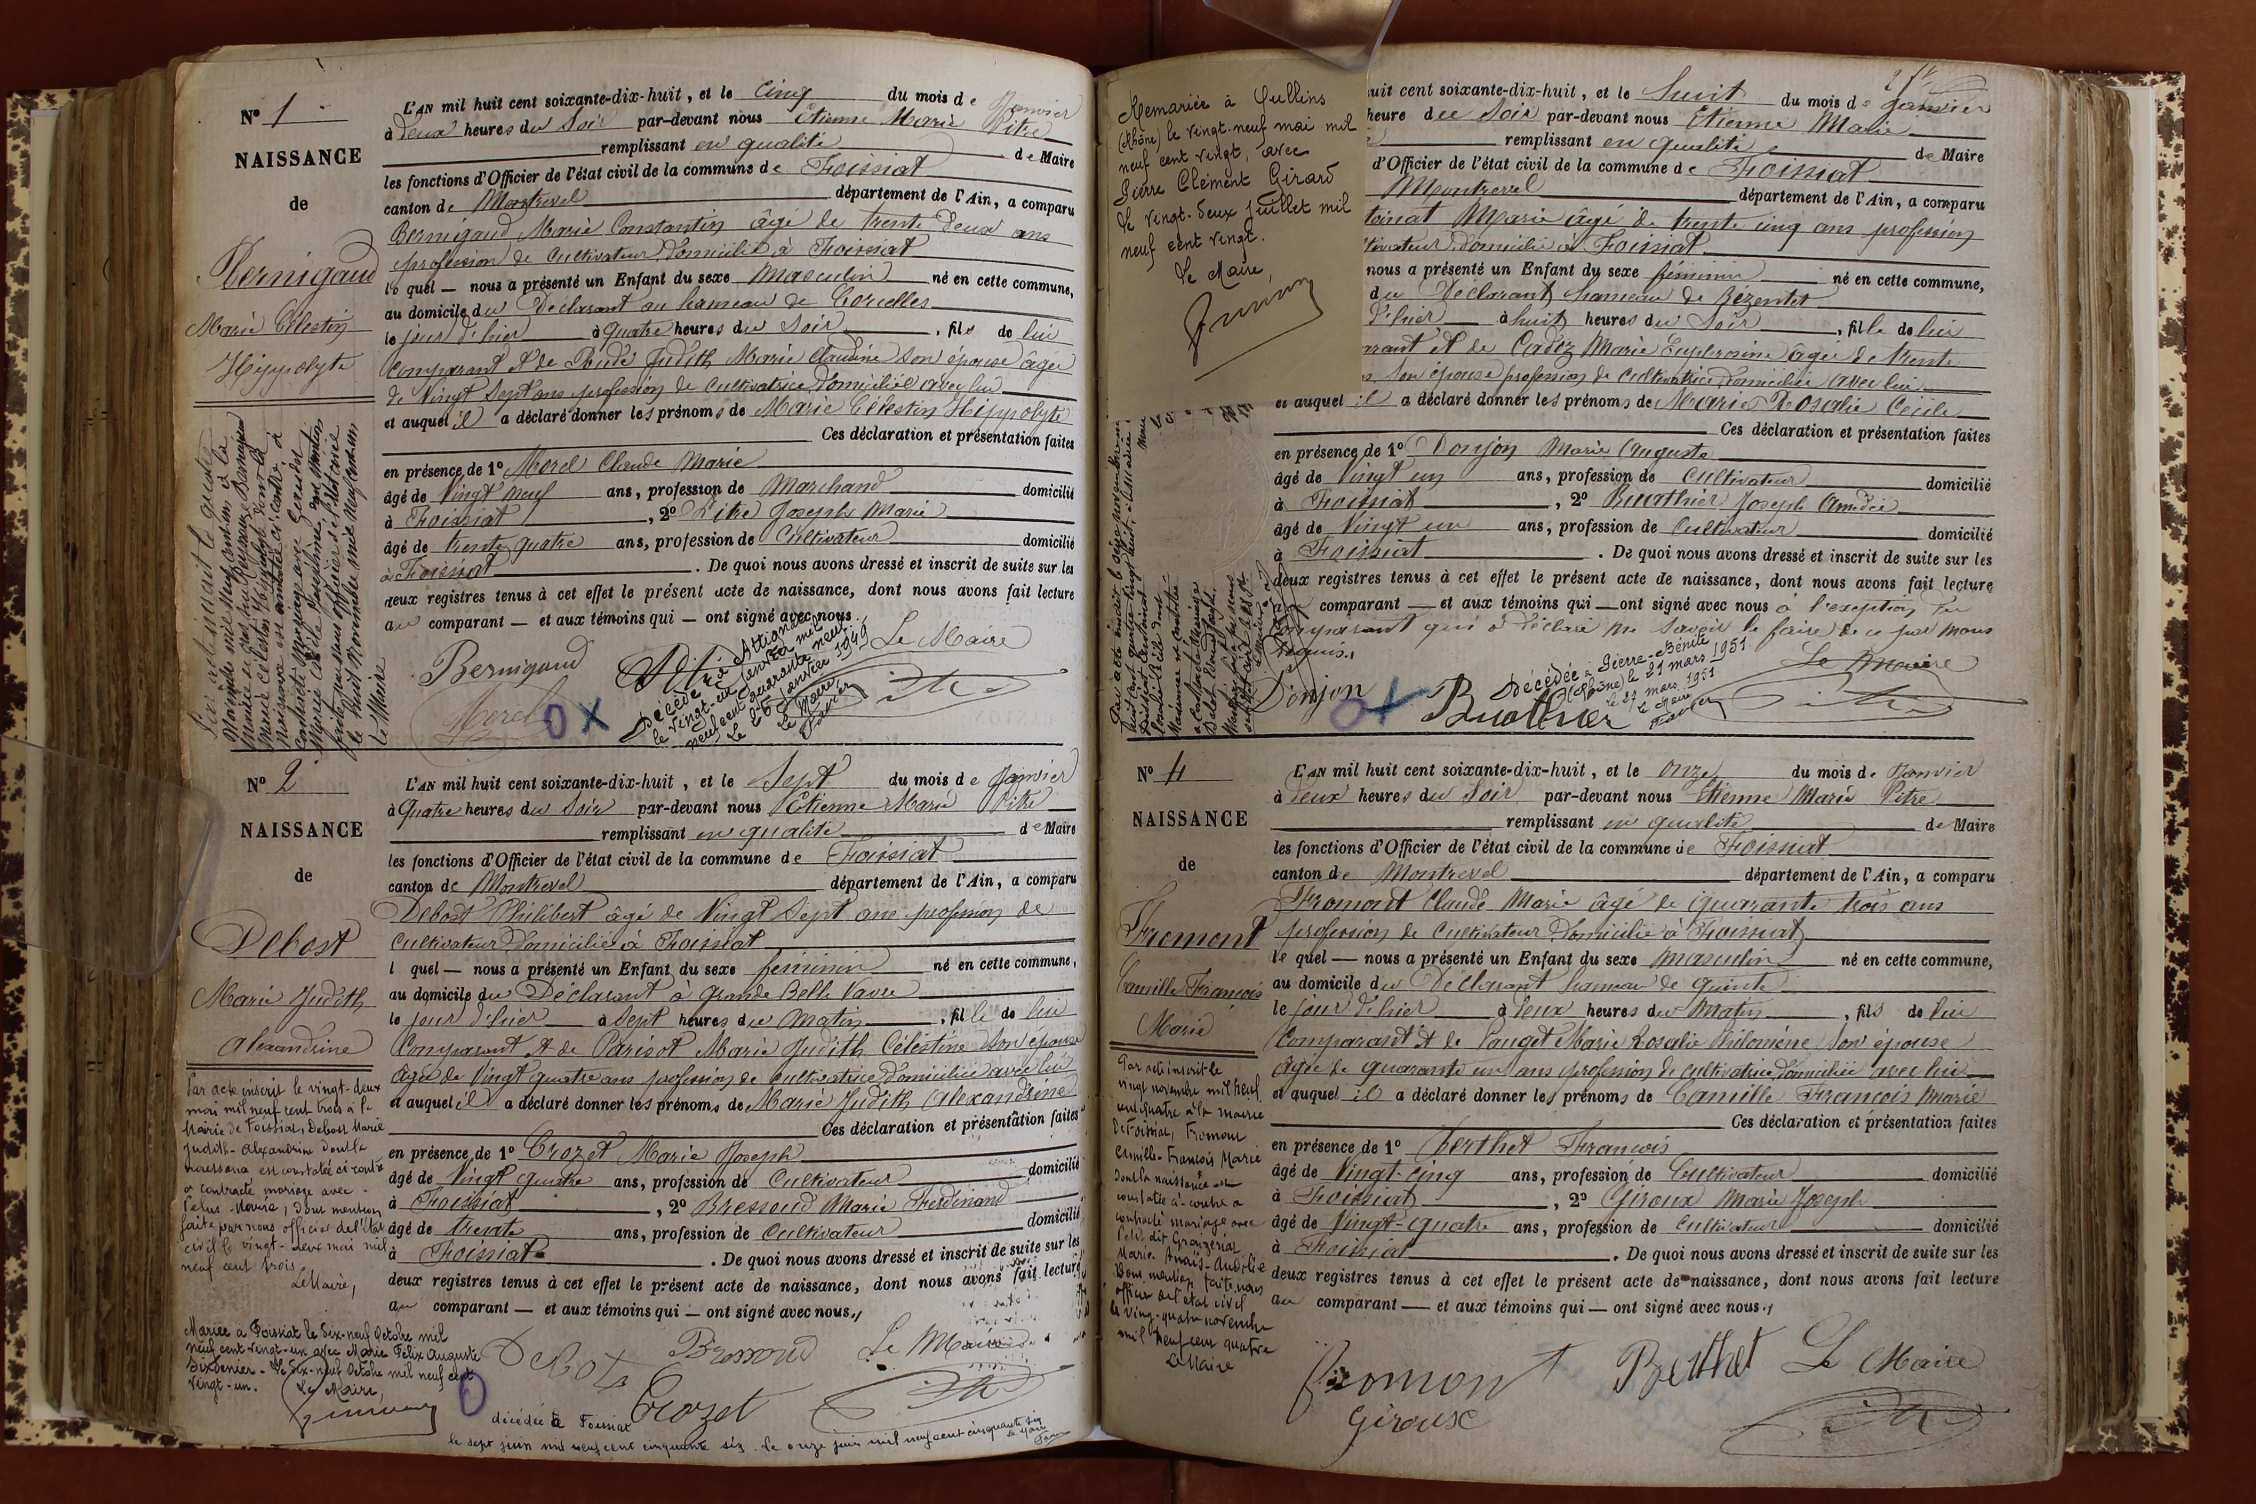 Nº 1
NAISSANCE
de
Bernigaud
Marie Célestin
Hippolyte
L'AN mil huit cent soixante-dix-huit, et le Cinq du mois de Janvier
à Deux heures du Soir par-devant nous Etienne Marie Pitre
remplissant en qualité de Maire
les fonctions d'Officier de l'état civil de la commune de Foissiat
canton de Montrevel département de l'Ain, a comparu
Bernigaud Marie Constantin âgé de trente deux ans
profession de Cultivateur Domicilié à Foissiat
le quel — nous a présenté un Enfant du sexe Masculin né en cette commune,
au domicile du Déclarant au hameau de Corcelles
le jour d'hier à quatre heures du Soir, fils de lui
Comparant et de Judith Marie Claudine Son épouse âgée
de Vingt Sept ans profession de Cultivatrice Domiciliée avec lui
et auquel il a déclaré donner les prénoms de Marie Célestin Hippolyte
Ces déclaration et présentation faites
en présence de 1º Morel Claude Marie
âgé de Vingt neuf ans, profession de Marchand domicilié
à Foissiat, 2º Pitre Joseph Marie
âgé de trente quatre ans, profession de Cultivateur domicilié
à Foissiat. De quoi nous avons dressé et inscrit de suite sur les
deux registres tenus à cet effet le présent acte de naissance, dont nous avons fait lecture
au comparant — et aux témoins qui — ont signé avec nous.
Bernigaud
Le Maire
Morel
Décédé à Attignat
le vingt-un janvier mil
neuf cent quarante neuf
Le 26 janvier 1949
Le Maire
Nº 2
NAISSANCE
de
Debost
Marie Judith
Alexandrine
Par acte inscrit le vingt-deux
mai mil neuf cent trois à la
Mairie de Foissiat, Debost Marie
Judith-Alexandrine dont la
naissance est constatée ci-contre
a contracté mariage avec
Marie, Dont mention
faite par nous officier de l'Etat
civil le vingt-deux mai mil
neuf cent trois
Le Maire,
Mariée à Foissiat le Dix-neuf Octobre mil
neuf cent vingt-un avec Marie Félix Auguste
Le Dix-neuf Octobre mil neuf cent
vingt-un.
Le Maire,
L'AN mil huit cent soixante-dix-huit, et le Sept du mois de Janvier
à Quatre heures du Soir par-devant nous Etienne Marie Pitre
remplissant en qualité de Maire
les fonctions d'Officier de l'état civil de la commune de Foissiat
canton de Montrevel département de l'Ain, a comparu
Debost Philibert âgé de Vingt Sept ans profession de
Cultivateur Domicilié à Foissiat
l quel — nous a présenté un Enfant du sexe féminin né en cette commune,
au domicile du Déclarant à Grande Belle Vavre
le jour d'hier à Sept heures du Matin, fille de lui
Comparant et de Parisot Marie Judith Célestine Son épouse
âgée de Vingt quatre ans profession de Cultivatrice Domiciliée avec lui
et auquel il a déclaré donner les prénoms de Marie Judith Alexandrine
Ces déclaration et présentation faites
en présence de 1º Crozet Marie Joseph
âgé de Vingt quatre ans, profession de Cultivateur domicilié
à Foissiat, 2º Bressoud Marie Ferdinand
âgé de trente ans, profession de Cultivateur domicilié
à Foissiat. De quoi nous avons dressé et inscrit de suite sur les
deux registres tenus à cet effet le présent acte de naissance, dont nous avons fait lecture
au comparant — et aux témoins qui — ont signé avec nous.
Debost Bressoud Le Maire
Crozet
décédée à Foissiat
le sept juin mil neuf cent cinquante six. Le onze juin mil neuf cent cinquante six
Le Maire
Remariée à Oullins
(Rhône) le vingt-neuf mai mil
neuf cent vingt, avec
Pierre Clément Girard
Le vingt-deux juillet mil
neuf cent vingt.
Le Maire,
huit cent soixante-dix-huit, et le huit du mois de Janvier
heure du Soir par-devant nous Etienne Marie
remplissant en qualité de Maire
d'Officier de l'état civil de la commune de Foissiat
Montrevel département de l'Ain, a comparu
Marie âgé de trente cinq ans profession
Domicilié à Foissiat
nous a présenté un Enfant du sexe féminin né en cette commune,
du Déclarant hameau de Bézentet
d'hier à huit heures du Soir, fille de lui
et de Cadez Marie Euphrosine âgée de trente
Son épouse profession de Cultivatrice Domiciliée avec lui
et auquel il a déclaré donner les prénoms de Marie Rosalie Cécile
Ces déclaration et présentation faites
en présence de 1º Donjon Marie Auguste
âgé de Vingt un ans, profession de Cultivateur domicilié
à Foissiat, 2º Buathier Joseph Amédée
âgé de Vingt un ans, profession de Cultivateur domicilié
à Foissiat. De quoi nous avons dressé et inscrit de suite sur les
deux registres tenus à cet effet le présent acte de naissance, dont nous avons fait lecture
comparant — et aux témoins qui — ont signé avec nous à l'exception du
comparant qui a déclaré ne Savoir le faire de ce par nous
requis.
Donjon
Buathier
Décédée à Pierre-Bénite
(Rhône) le 21 mars 1951
le 31 mars 1951
Le Maire
Le Maire
Nº 4
NAISSANCE
de
Fromont
Camille François
Marie
Par acte inscrit le
vingt novembre mil neuf
cent quatre à la mairie
de Foissiat, Fromont
Camille-François Marie
dont la naissance est
constatée ci-contre a
contracté mariage avec
Marie Anaïs-Aurélie
Dont mention faite nous
officier de l'état civil
le vingt-quatre novembre
mil neuf cent quatre
Le Maire
L'AN mil huit cent soixante-dix-huit, et le onze du mois de Janvier
à Deux heures du Soir par-devant nous Etienne Marie Pitre
remplissant en qualité de Maire
les fonctions d'Officier de l'état civil de la commune de Foissiat
canton de Montrevel département de l'Ain, a comparu
Fromont Claude Marie âgé de quarante trois ans
profession de Cultivateur Domicilié à Foissiat
le quel — nous a présenté un Enfant du sexe Masculin né en cette commune,
au domicile du Déclarant hameau de
le jour d'hier à Deux heures du Matin, fils de lui
Comparant et de Pauget Marie Rosalie Philomène Son épouse
âgée de quarante un ans profession de Cultivatrice Domiciliée avec lui
et auquel il a déclaré donner les prénoms de Camille François Marie
Ces déclaration et présentation faites
en présence de 1º Berthet François
âgé de Vingt-cinq ans, profession de Cultivateur domicilié
à Foissiat, 2º Giroux Marie Joseph
âgé de Vingt-quatre ans, profession de Cultivateur domicilié
à Foissiat. De quoi nous avons dressé et inscrit de suite sur les
deux registres tenus à cet effet le présent acte de naissance, dont nous avons fait lecture
au comparant — et aux témoins qui — ont signé avec nous.
Fromont Berthet Le Maire
Giroux